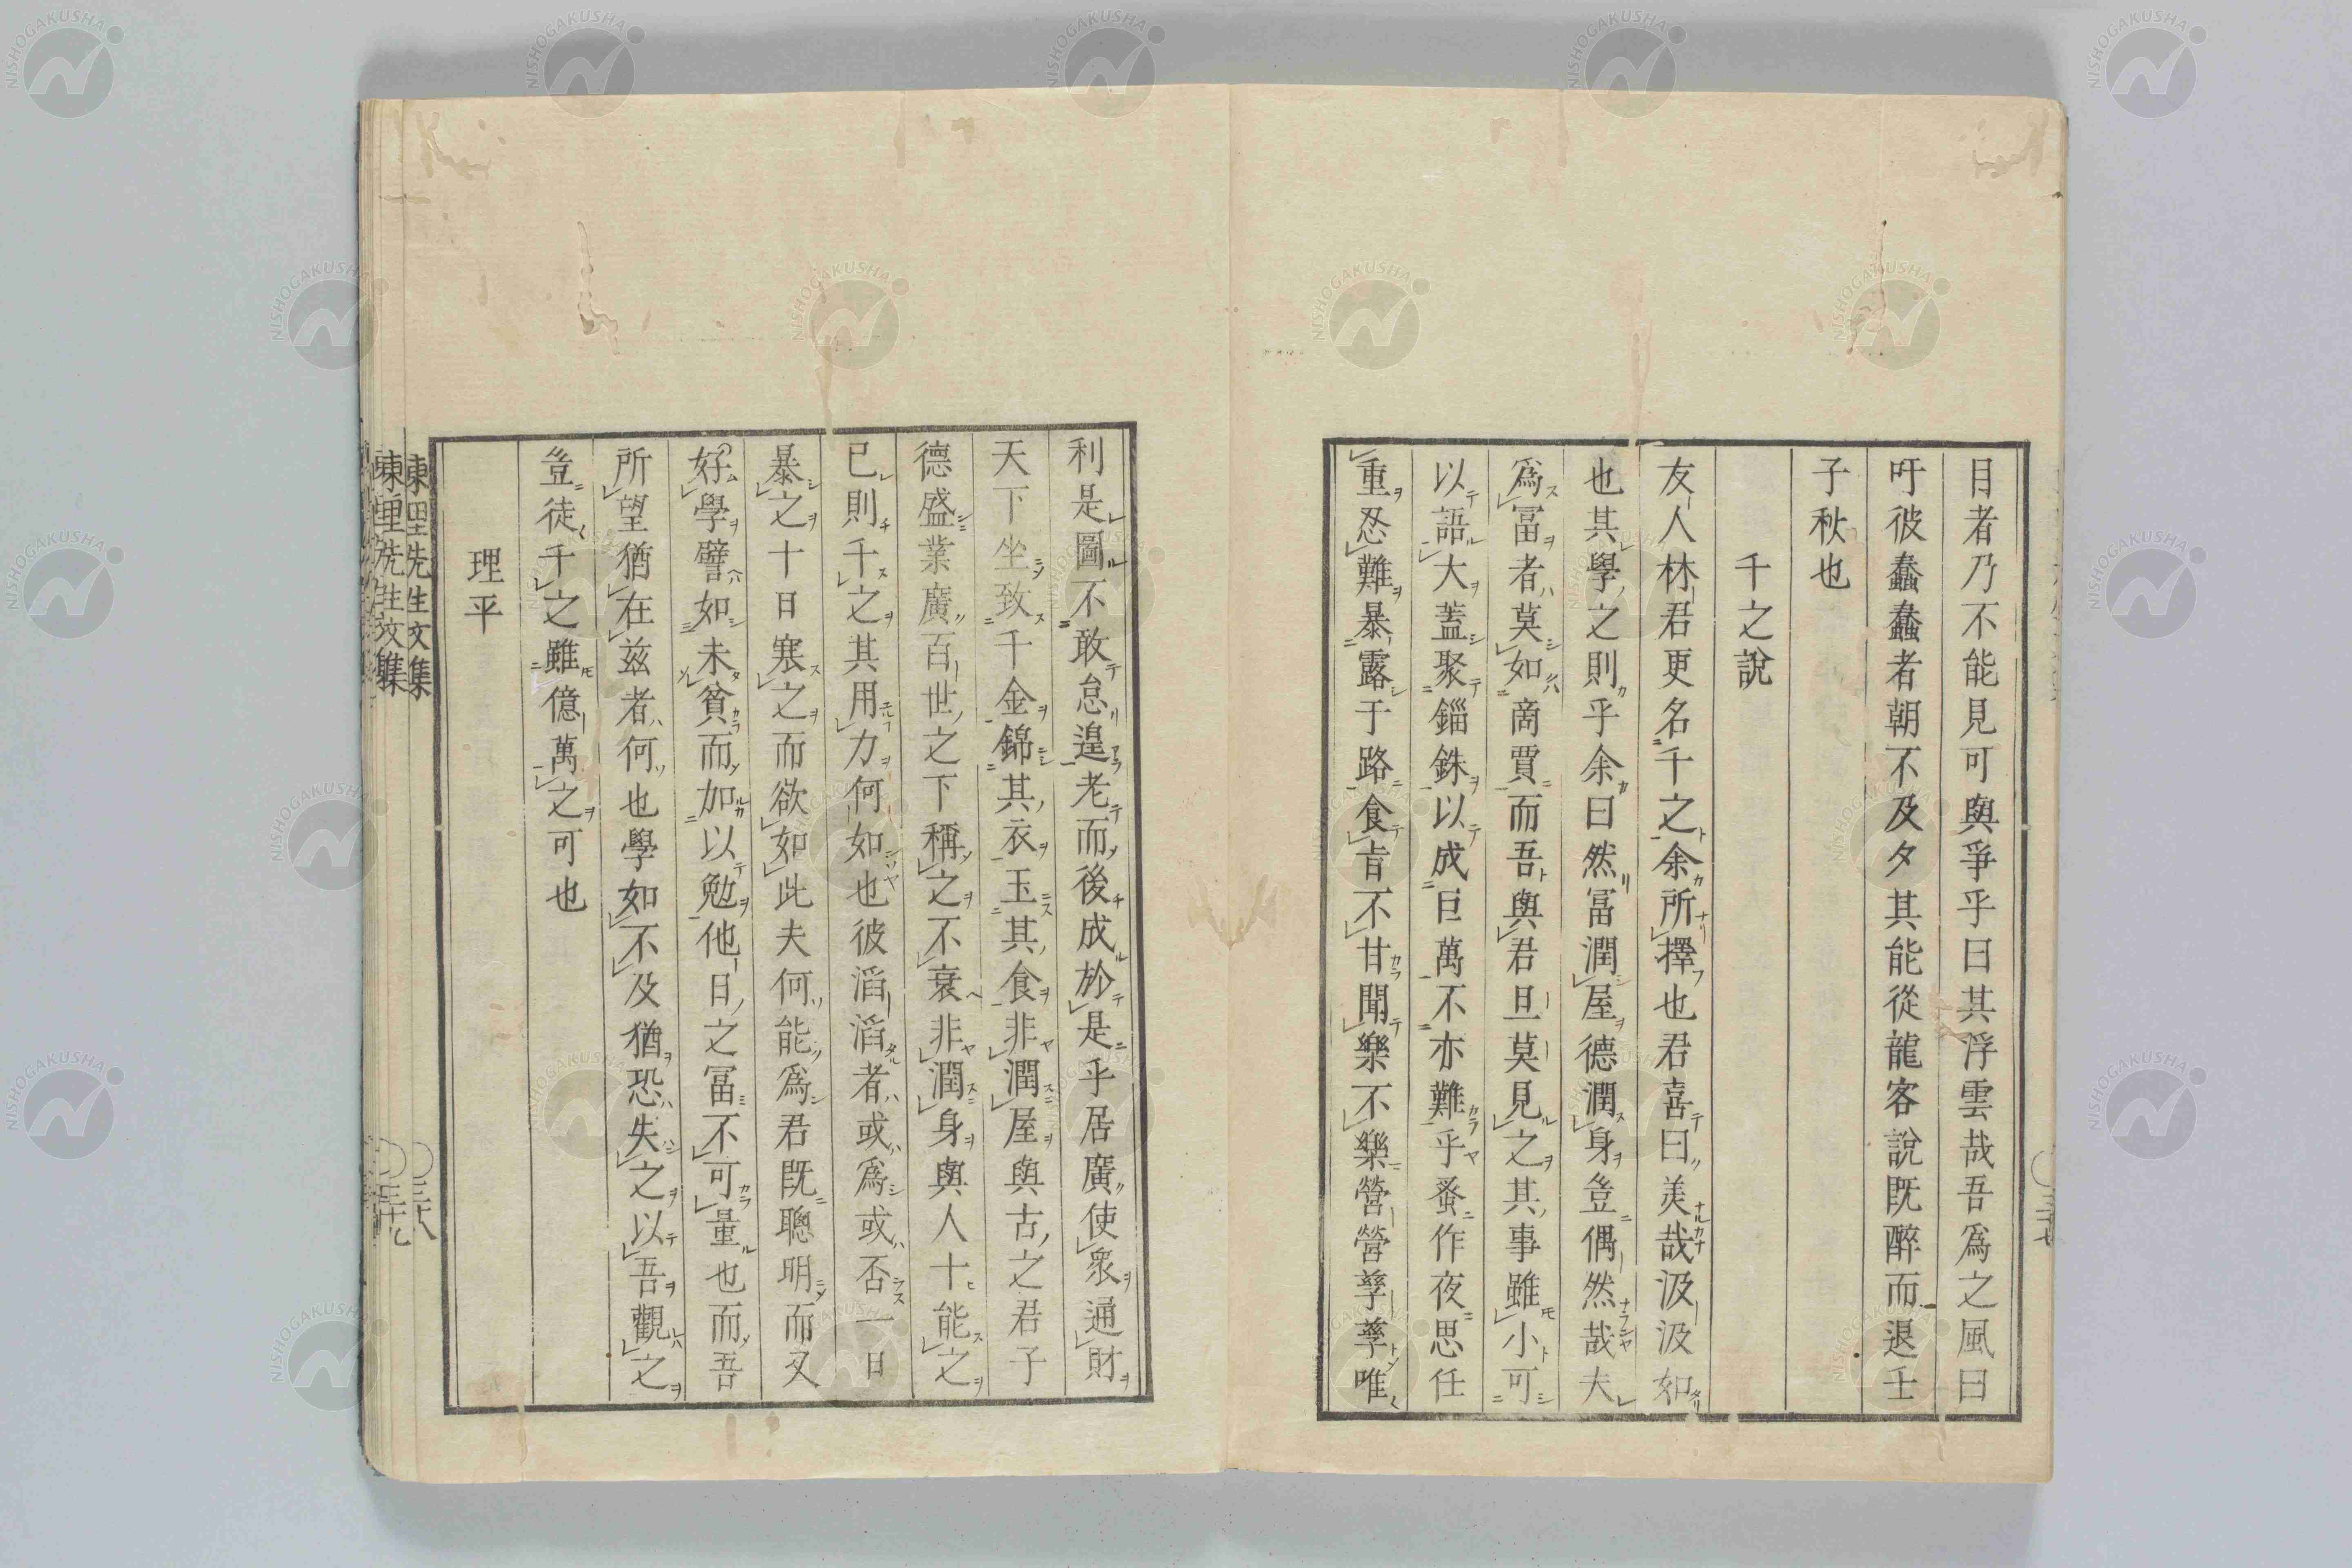 目者乃不能見可與爭乎曰其浮雲哉吾爲之風曰
吁彼蠢蠢者朝不及夕其能從龍客說既醉而退壬
子秋也
千之說
友人林君更名千之余所擇也君喜曰美哉汲汲如
也其學之則乎余曰然冨潤屋德潤身豈偶然哉夫
爲冨者莫如啇賈而吾與君旦莫見之其事雖小可
以語大蓋聚錙銖以成巨萬不亦難乎蚤作夜思任
重忍難暴露于路食旨不甘聞樂不樂營營孳孳唯
利是圖不敢怠遑老而後成於是乎居廣使衆通財
天下坐致千金錦其衣玉其食非潤屋與古之君子
德盛業廣百世之下稱之不衰非潤身與人十能之
已則千之其用力何如也彼滔滔者或爲或否一日
暴之十日寒之而欲如此夫何能爲君既聰明而又
好學譬如未貧而加以勉他日之冨不可量也而吾
所望猶在兹者何也學如不及猶恐失之以吾觀之
豈徒千之雖億萬之可也
理平
東里先生文集
三十八
東里先生文集
三十九
三十七
NISHOGAKUSHA